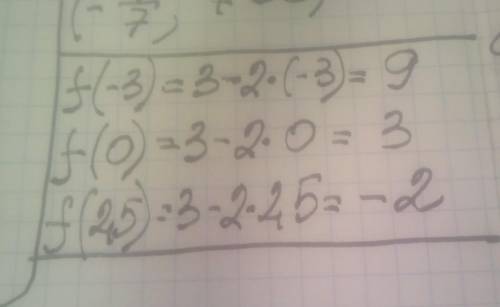 (-  /7,
f(-3) = 3-2·(-3) = 9
f(0) = 3-2·0 = 3
f(2,5) = 3-2·2,5 = -2